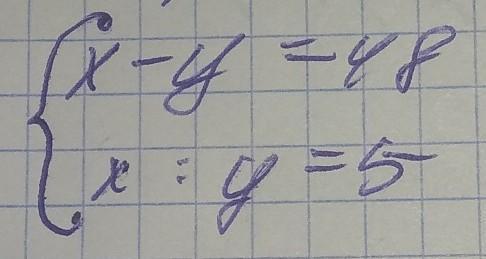 x - y = 48
x : y = 5